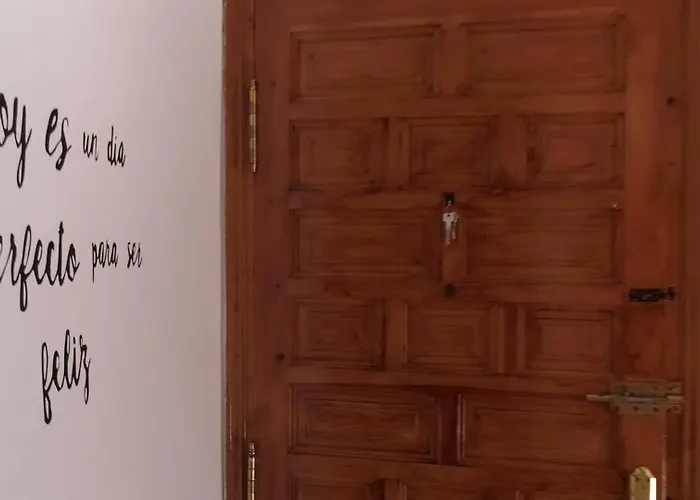 oy es un dia
erfecto para ser
feliz